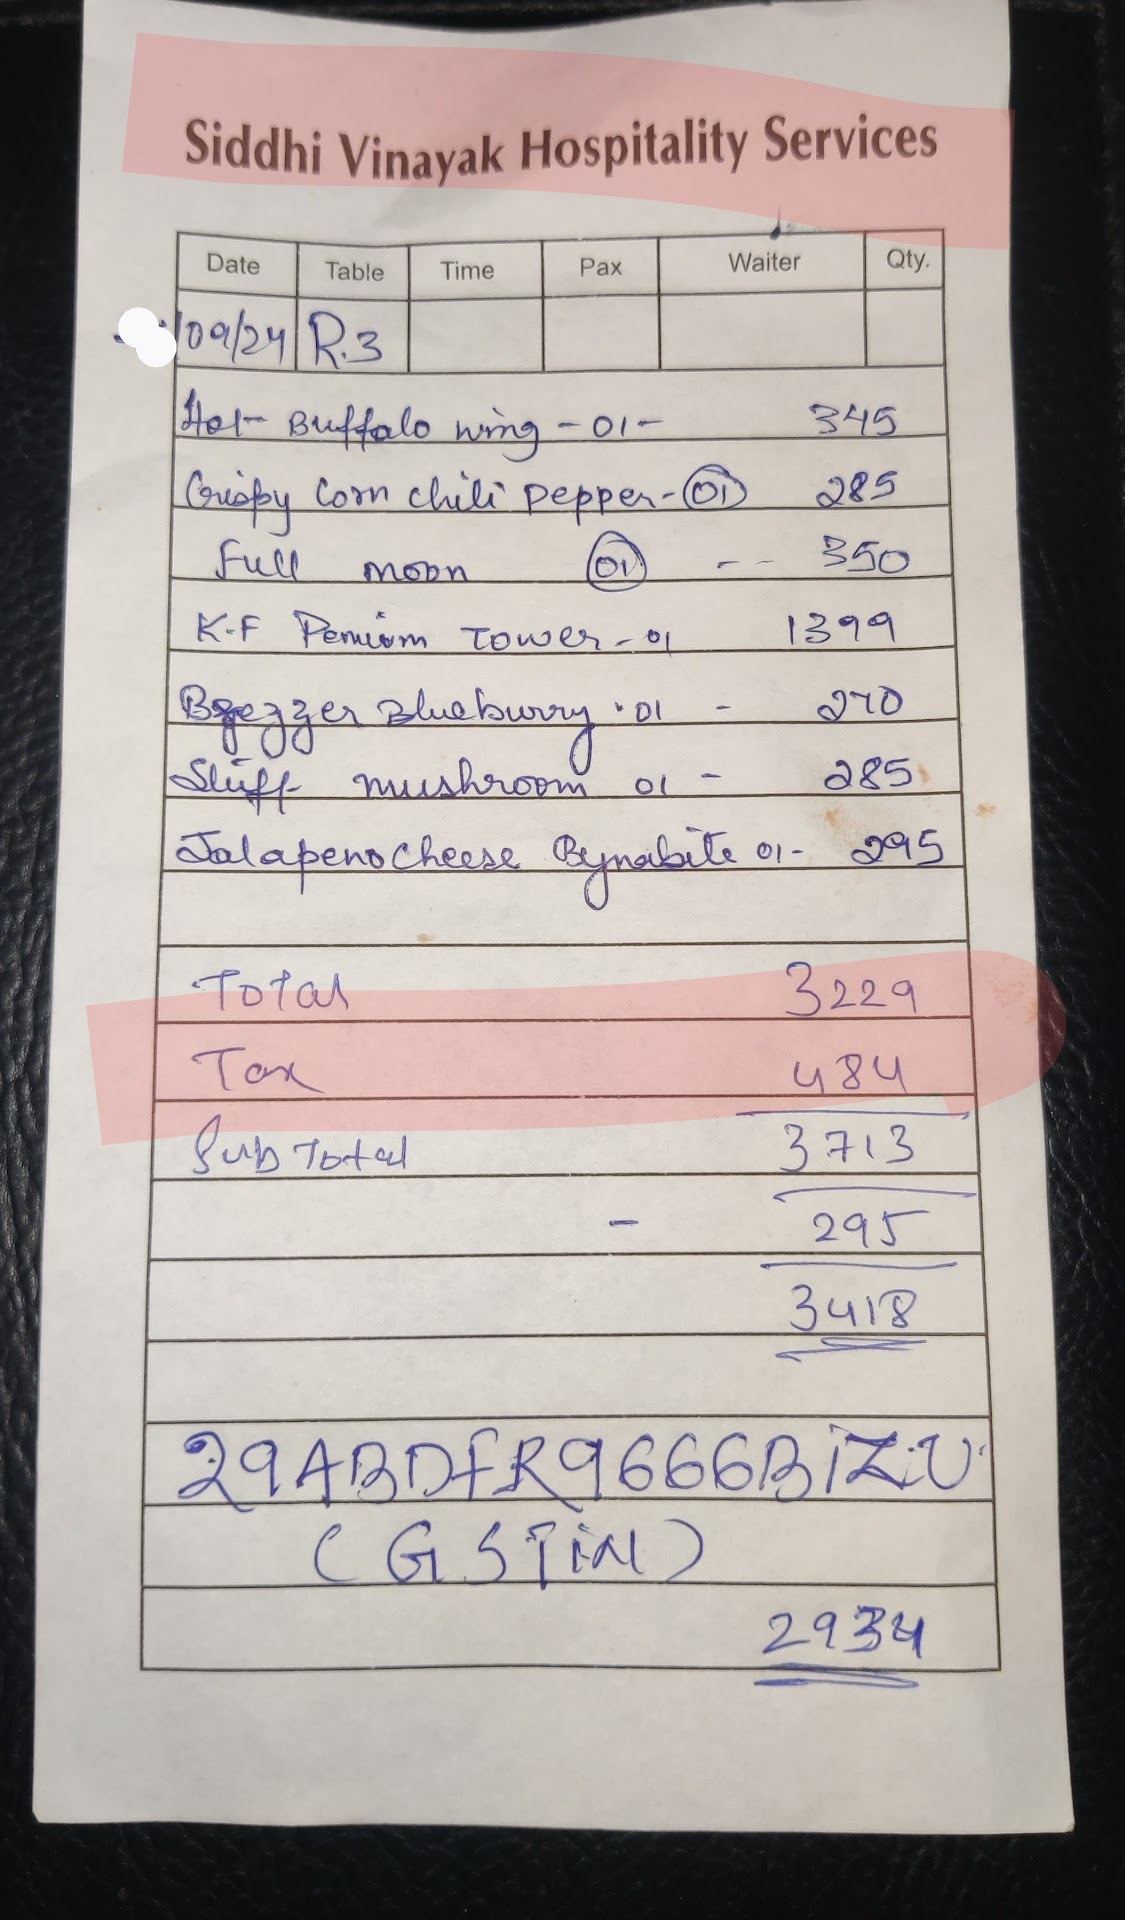 Siddhi Vinayak Hospitality Services
Date Table Time Pax Waiter Qty.
/09/24 R.3
Hot Buffalo wing - 01 - 345
Crispy Corn chili Pepper - 01 285
Full moon 01 -- 350
K.F Pemium Tower - 01 1399
Blueburry . 01 - 270
Stuff mushroom 01 - 285
Jalapeno Cheese 01 - 295
Total 3229
Tax 484
Sub Total 3713
- 295
3418
29ABDFR9666B1ZU
(GSTiN)
2934